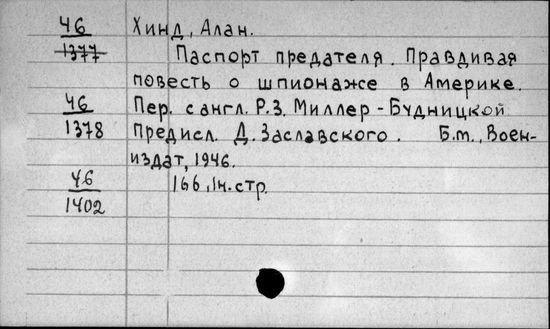 46 Хинд, Алан.
1377 Паспорт предателя. Правдивая
повесть о шпионаже в Америке.
46 Пер. с англ. Р.З. Миллер-Будницкой
1378 Предисл. Д. Заславского. Б.м., Воен-
издат, 1946.
46 166, 1н. стр.
1402